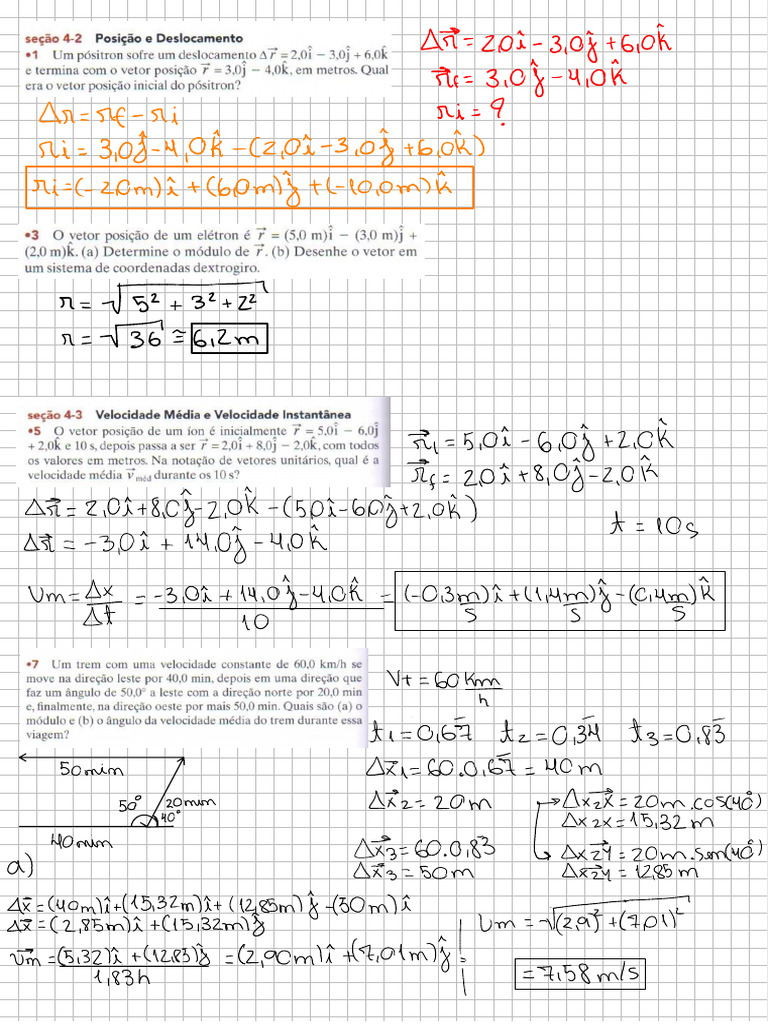 seção 4-2 Posição e Deslocamento
•1 Um pósitron sofre um deslocamento Δr⃗ = 2,0î − 3,0ĵ + 6,0k̂
e termina com o vetor posição r⃗ = 3,0ĵ − 4,0k̂, em metros. Qual
era o vetor posição inicial do pósitron?
Δr⃗ = 2,0î − 3,0ĵ + 6,0k̂
r⃗f = 3,0ĵ − 4,0k̂
ri = ?
Δr = rf − ri
ri = 3,0ĵ − 4,0k̂ − (2,0î − 3,0ĵ + 6,0k̂)
ri = (−2,0m)î + (6,0m)ĵ + (−10,0m)k̂
•3 O vetor posição de um elétron é r⃗ = (5,0 m)î − (3,0 m)ĵ +
(2,0 m)k̂. (a) Determine o módulo de r⃗. (b) Desenhe o vetor em
um sistema de coordenadas dextrogiro.
r = √5² + 3² + 2²
r = √36 ≅ 6,2m
seção 4-3 Velocidade Média e Velocidade Instantânea
•5 O vetor posição de um íon é inicialmente r⃗ = 5,0î − 6,0ĵ
+ 2,0k̂ e 10 s, depois passa a ser r⃗ = 2,0î + 8,0ĵ − 2,0k̂, com todos
os valores em metros. Na notação de vetores unitários, qual é a
velocidade média v⃗méd durante os 10 s?
r⃗1 = 5,0î − 6,0ĵ + 2,0k̂
r⃗f = 2,0î + 8,0ĵ − 2,0k̂
t = 10s
Δr⃗ = 2,0î + 8,0ĵ − 2,0k̂ − (5,0î − 6,0ĵ + 2,0k̂)
Δr⃗ = −3,0î + 14,0ĵ − 4,0k̂
Vm = Δx/Δt = −3,0î + 14,0ĵ − 4,0k̂/10 = (−0,3m/s)î + (1,4m/s)ĵ − (0,4m/s)k̂
•7 Um trem com uma velocidade constante de 60,0 km/h se
move na direção leste por 40,0 min, depois em uma direção que
faz um ângulo de 50,0° a leste com a direção norte por 20,0 min
e, finalmente, na direção oeste por mais 50,0 min. Quais são (a) o
módulo e (b) o ângulo da velocidade média do trem durante essa
viagem?
Vt = 60 Km/h
t1 = 0,67 t2 = 0,34 t3 = 0,83
Δx⃗1 = 60.0,67 = 40m
Δx⃗2 = 20m
Δx2x⃗ = 20m.cos(40°)
Δx2x = 15,32m
Δx⃗3 = 60.0,83
Δx⃗3 = 50m
Δx2y⃗ = 20m.sen(40°)
Δx2y⃗ = 12,85m
50min
50° 20min
40°
40min
a)
Δx⃗ = (40m)î + (15,32m)î + (12,85m)ĵ − (50m)î
Δx⃗ = (2,85m)î + (15,32m)ĵ
v⃗m = (5,32)î + (12,83)ĵ/1,83h = (2,90m)î + (7,01m)ĵ =
Vm = √(2,9)² + (7,01)²
= 7,58m/s